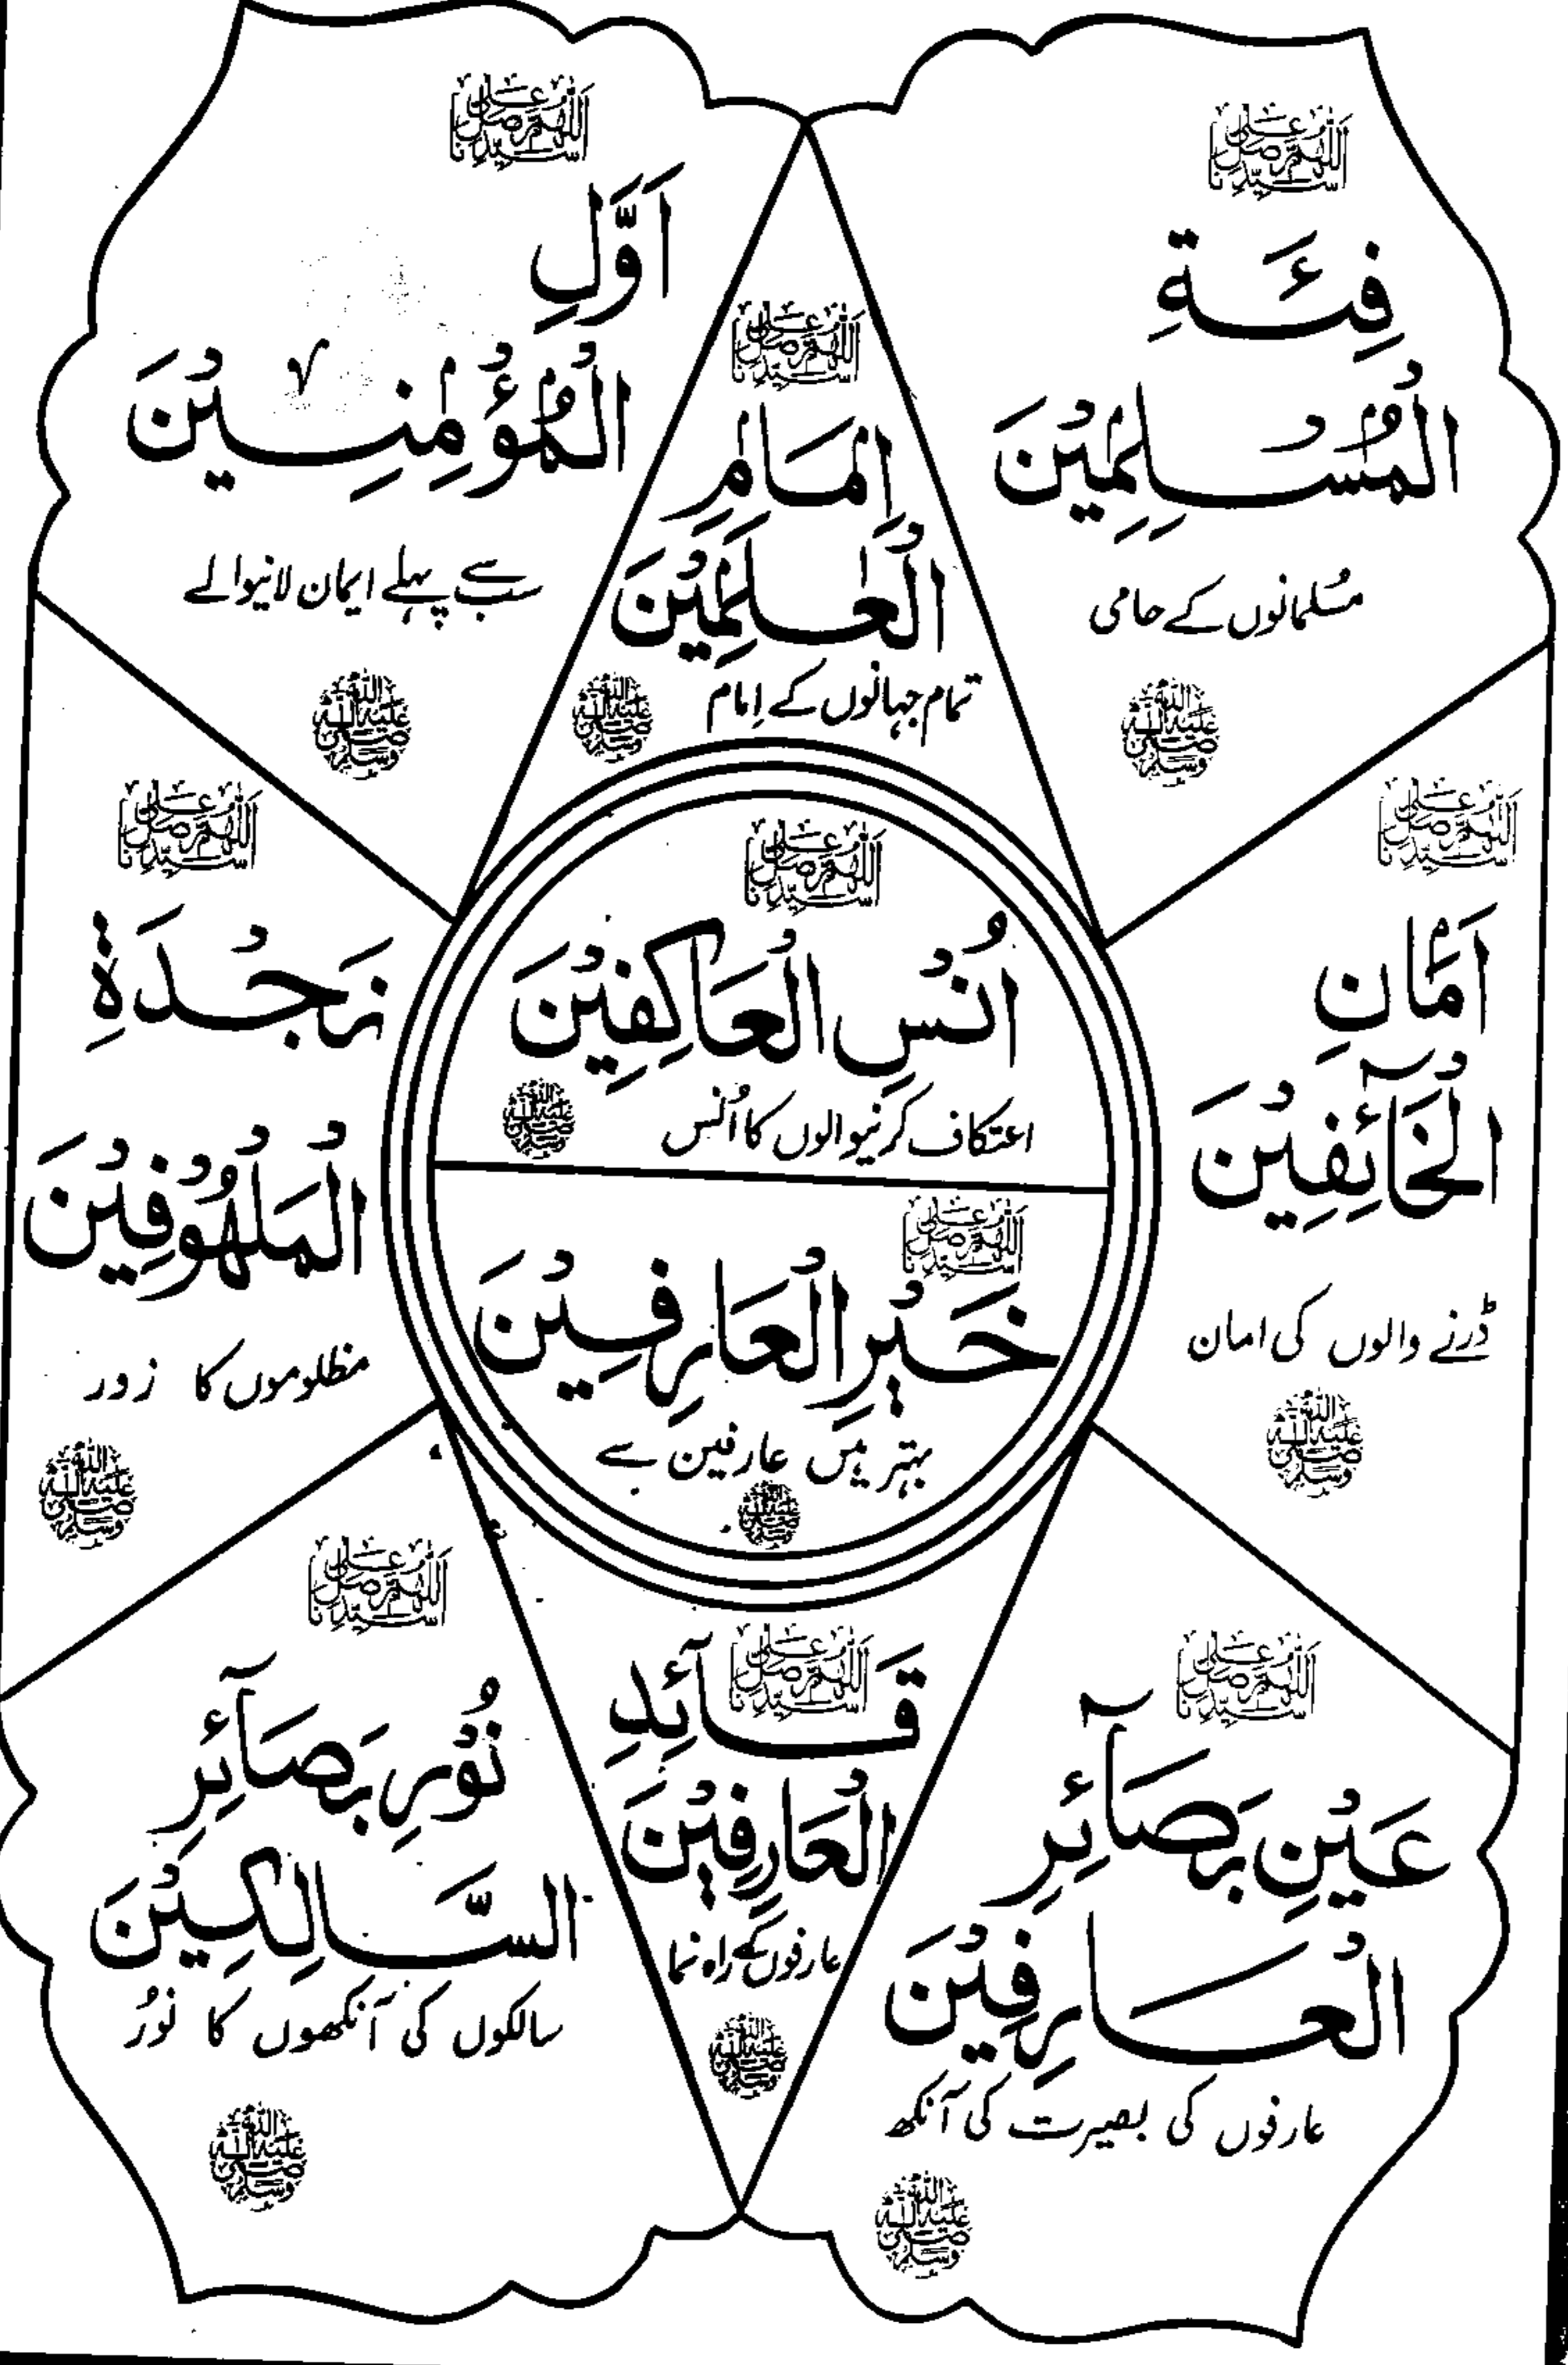 اَللّٰهُمَّ صَلِّ عَلٰى سَيِّدِنَا
فِئَةِ
الْمُسْلِمِيْنَ
مُسلمانوں کے حامی
صلى الله عليه وسلم
اَللّٰهُمَّ صَلِّ عَلٰى سَيِّدِنَا
اِمَامِ
الْعٰلَمِيْنَ
تمام جہانوں کے اِمام
صلى الله عليه وسلم
اَللّٰهُمَّ صَلِّ عَلٰى سَيِّدِنَا
اَوَّلِ
الْمُؤْمِنِيْنَ
سب سے پہلے ایمان لانیوالے
صلى الله عليه وسلم
اَللّٰهُمَّ صَلِّ عَلٰى سَيِّدِنَا
اَمَانِ
الْخَآئِفِيْنَ
ڈرنے والوں کی امان
صلى الله عليه وسلم
اَللّٰهُمَّ صَلِّ عَلٰى سَيِّدِنَا
اُنْسِ الْعَاكِفِيْنَ
اعتکاف کرنیوالوں کا اُنس
صلى الله عليه وسلم
اَللّٰهُمَّ صَلِّ عَلٰى سَيِّدِنَا
خَيْرِ الْعَارِفِيْنَ
بہتر ہیں عارفین سے
صلى الله عليه وسلم
اَللّٰهُمَّ صَلِّ عَلٰى سَيِّدِنَا
نَجْدَةِ
الْمَلْهُوْفِيْنَ
مظلوموں کا زور
صلى الله عليه وسلم
اَللّٰهُمَّ صَلِّ عَلٰى سَيِّدِنَا
عَيْنِ بَصَآئِرِ
الْعَارِفِيْنَ
عارفوں کی بصیرت کی آنکھ
صلى الله عليه وسلم
اَللّٰهُمَّ صَلِّ عَلٰى سَيِّدِنَا
قَآئِدِ
الْعَارِفِيْنَ
عارفوں کے راہ نما
صلى الله عليه وسلم
اَللّٰهُمَّ صَلِّ عَلٰى سَيِّدِنَا
نُوْرِ بَصَآئِرِ
السَّالِكِيْنَ
سالکوں کی آنکھوں کا نورُ
صلى الله عليه وسلم